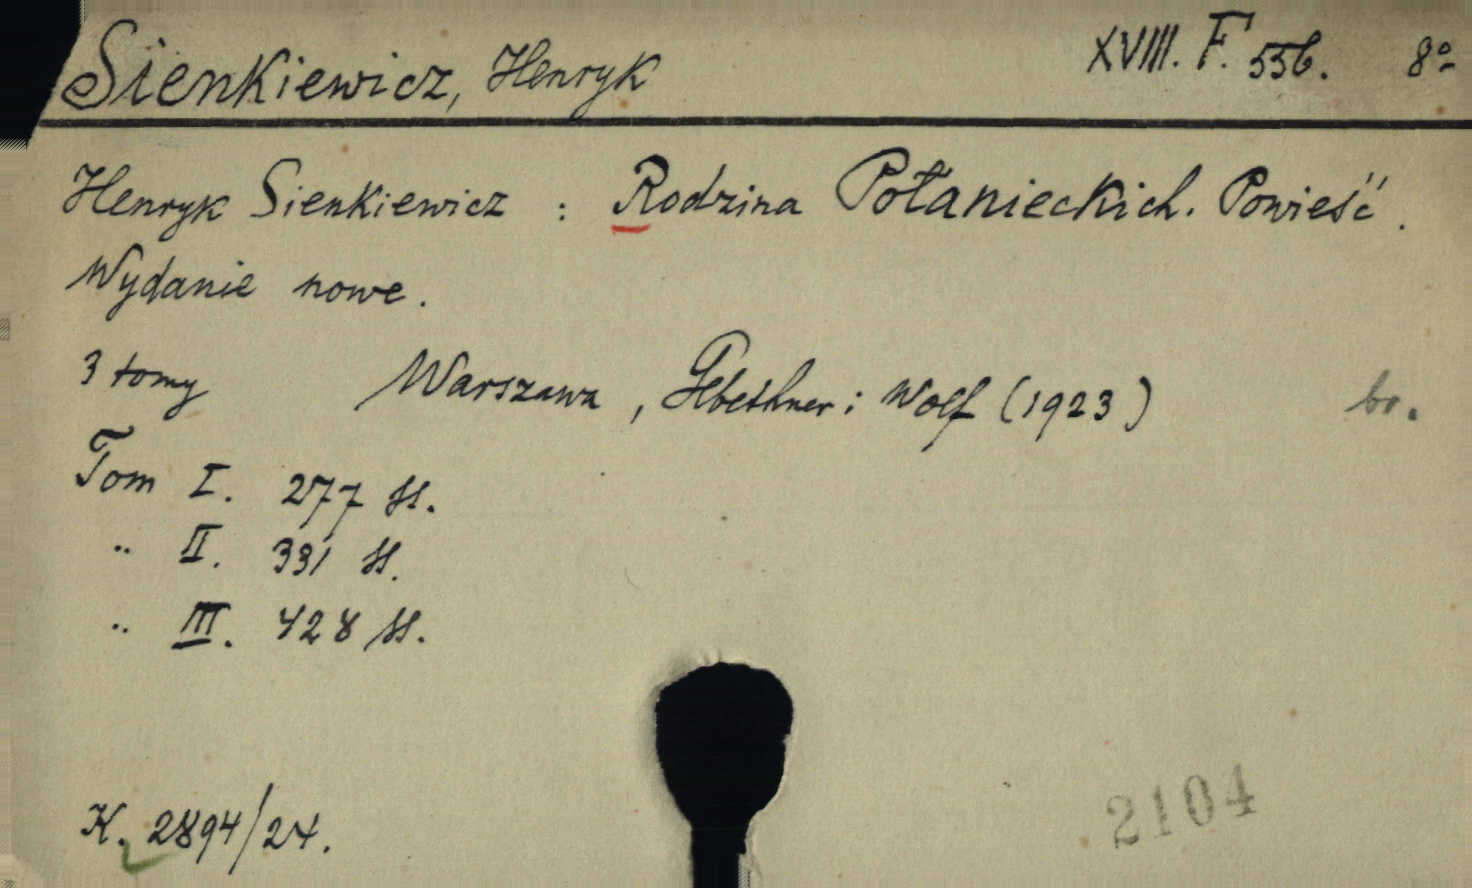 Sienkiewicz, Henryk XVIII. F. 556. 8º
Henryk Sienkiewicz : Rodzina Połanieckich. Powieść.
Wydanie nowe.
3 tomy Warszawa, Gebethner i Wolf (1923) br.
Tom I. 277 ss.
" II. 331 ss.
" III. 428 ss.
K. 2894/24.
2104